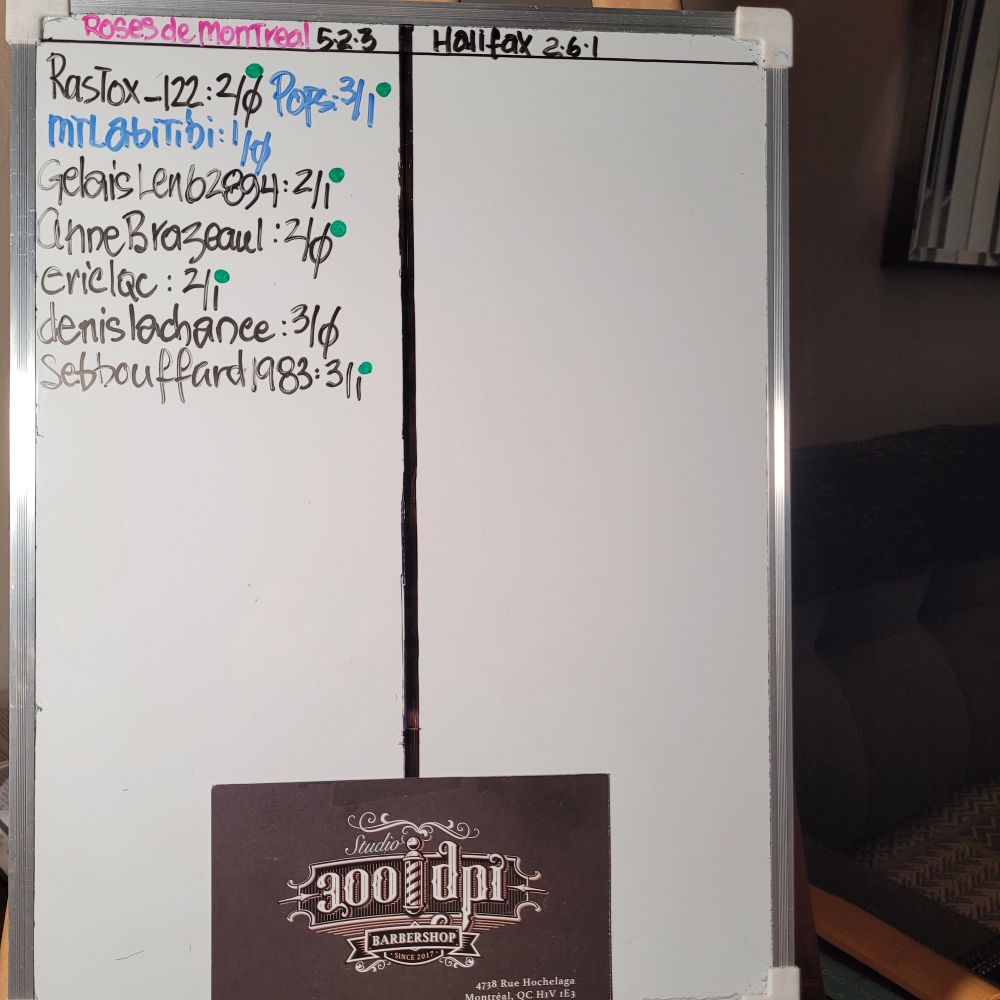 Roses de Montreal 5.2.3
Halifax 2.6.1
RasTox_122:2/ø Pops:3/1
mTLabiTibi:1/ø
GelaisLen62894:2/1
AnneBrazeaul:2/ø
ericlac:2/1
denislachance:3/ø
Sebbouffard1983:3/1
Studio
300 dpi
BARBERSHOP
SINCE 2017
4738 Rue Hochelaga
Montréal, QC H1V 1E3